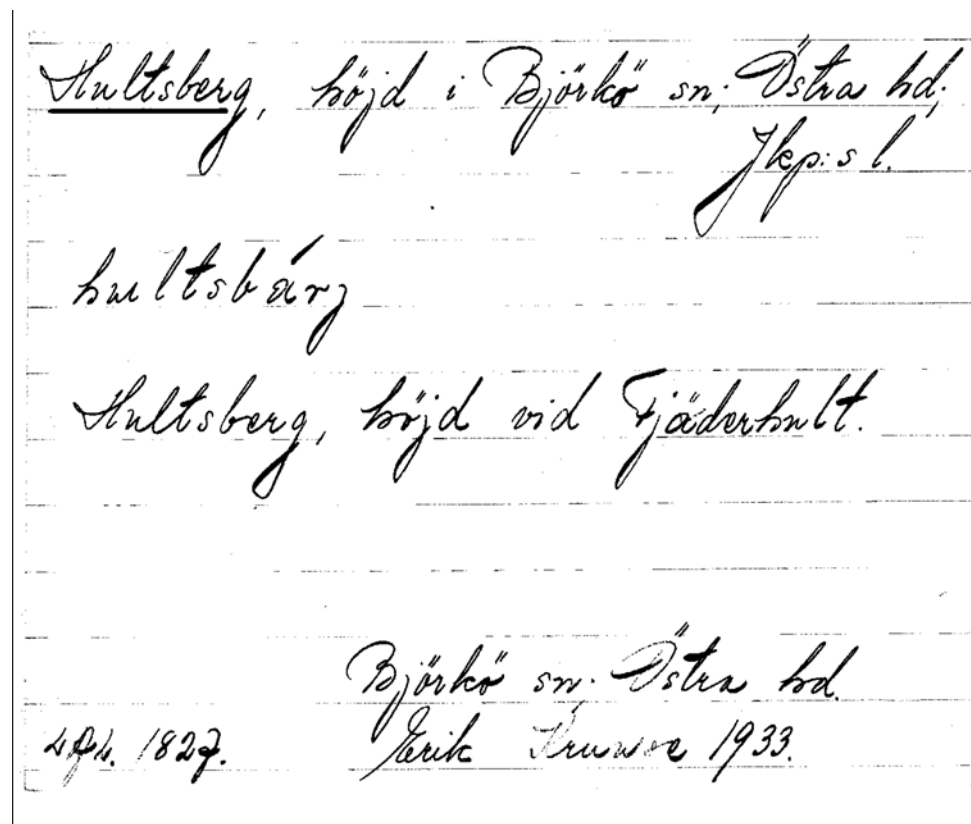 Hultsberg, höjd i Björkö sn; Östra hd;
Jkp:s l.
hultsbárj
Hultsberg, höjd vid Fjäderhult.
Björkö sn. Östra hd.
1827. Erik 1933.